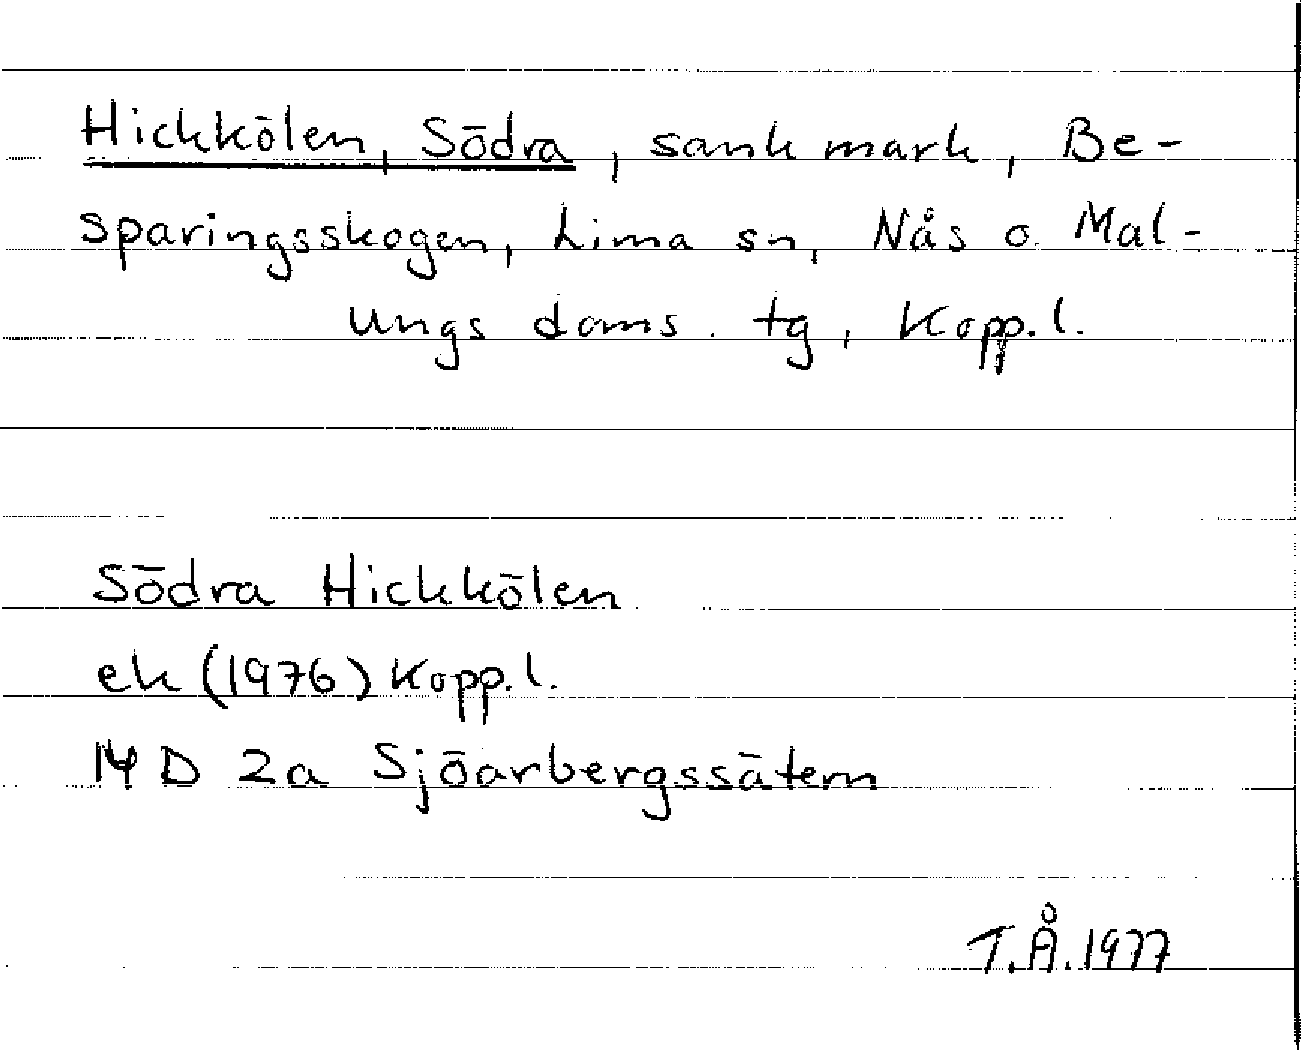 Hickkölen, Södra, sank mark, Be-
sparingsskogen, Lima sn, Nås o. Mal-
ungs doms. tg, Kopp. l.
Södra Hickkölen
ek (1976) Kopp. l.
14 D 2a Sjöarbergssätern
T.Å. 1977